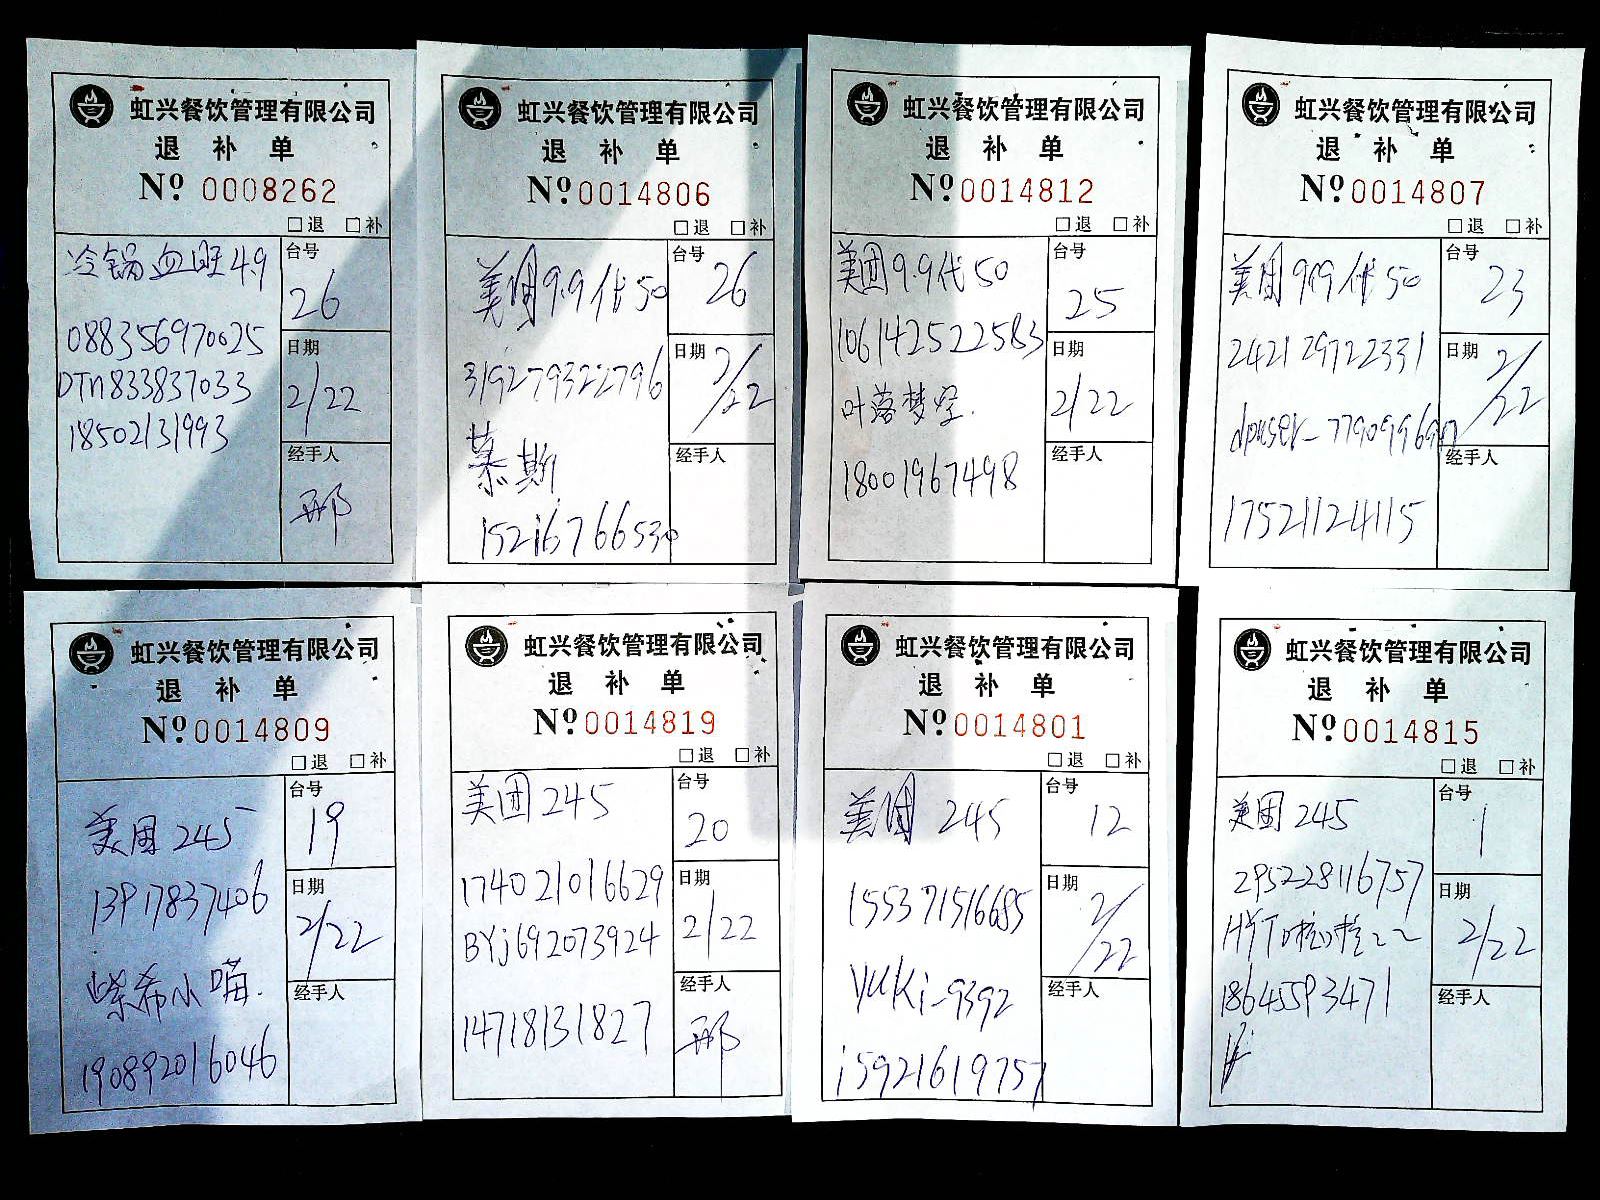 虹兴餐饮管理有限公司
退 补 单
Nº 0008262
□退 □补
冷锅血旺49
088356970025
DTn833837033
18502131993
台号
26
日期
2/22
经手人
邢
虹兴餐饮管理有限公司
退 补 单
Nº 0014806
□退 □补
美团9.9代50
319279322796
慕斯
15216766530
台号
26
日期
2/22
经手人
虹兴餐饮管理有限公司
退 补 单
Nº 0014812
□退 □补
美团9.9代50
106142522583
叶落梦空.
18001967498
台号
25
日期
2/22
经手人
虹兴餐饮管理有限公司
退 补 单
Nº 0014807
□退 □补
美团9.9代50
242129722331
17521124115
台号
23
日期
2/22
经手人
虹兴餐饮管理有限公司
退 补 单
Nº 0014809
□退 □补
美团 245
13917837406
柴希小喵.
190892016046
台号
19
日期
2/22
经手人
虹兴餐饮管理有限公司
退 补 单
Nº 0014819
□退 □补
美团 245
174021016629
BYj692073924
14718131827
台号
20
日期
2/22
经手人
邢
虹兴餐饮管理有限公司
退 补 单
Nº 0014801
□退 □补
美团 245
155371516685
yuki-9392
15921619757
台号
12
日期
2/22
经手人
虹兴餐饮管理有限公司
退 补 单
Nº 0014815
□退 □补
美团 245
295228116757
18645593471
台号
1
日期
2/22
经手人